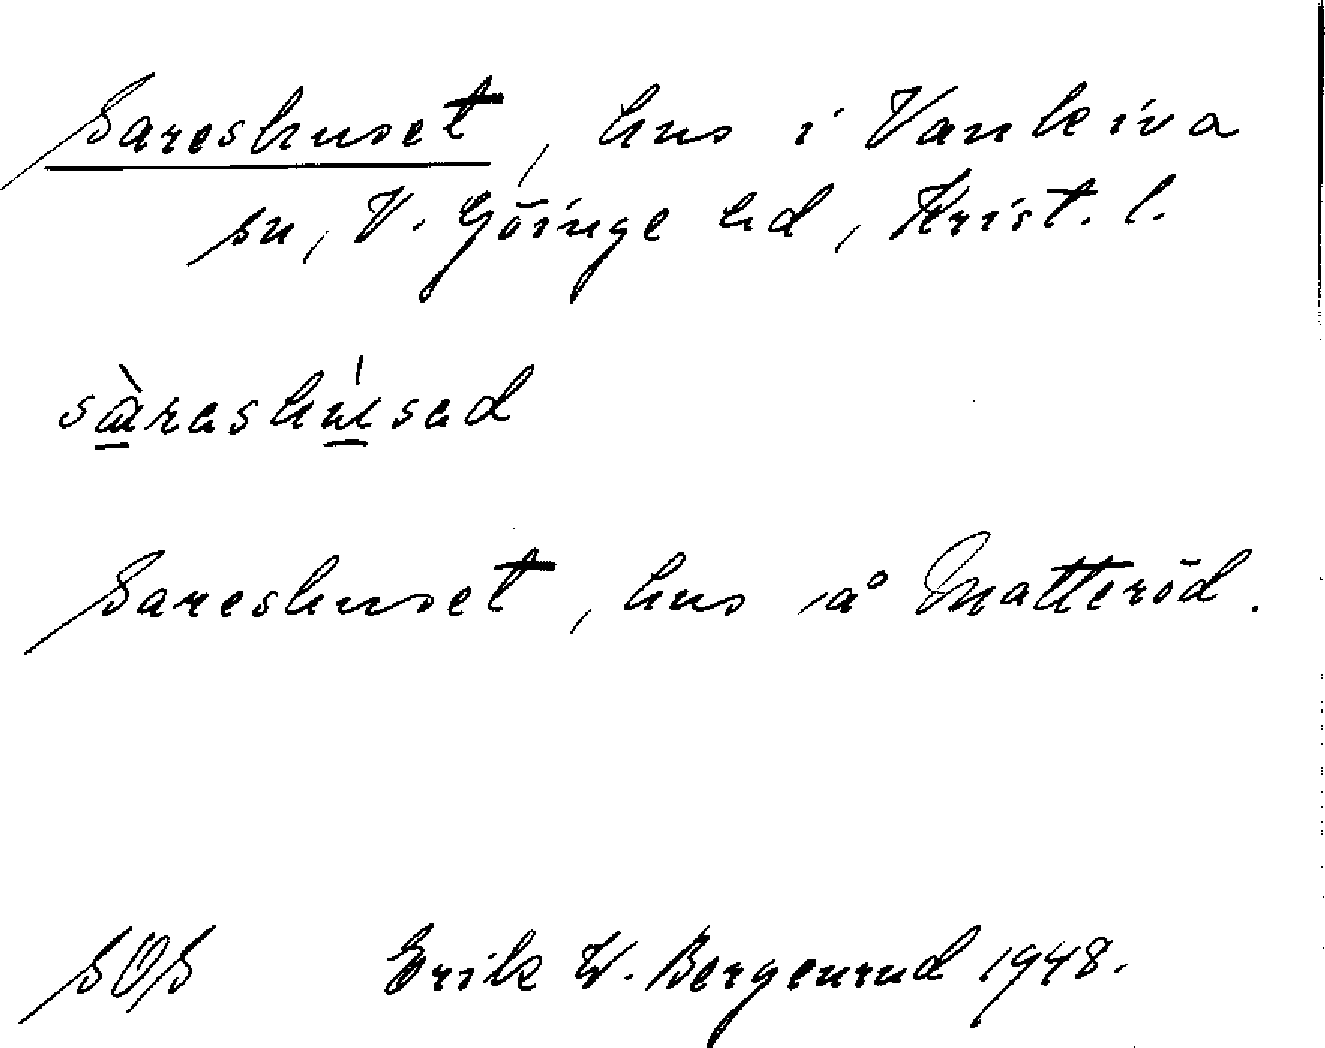 Sareshuset, hus i Vankiva
sn, V. Göinge hd, Krist. l.
sàrashúsad
Sareshuset, hus å Matteröd.
SOS Erik W. Bergenrud 1948.